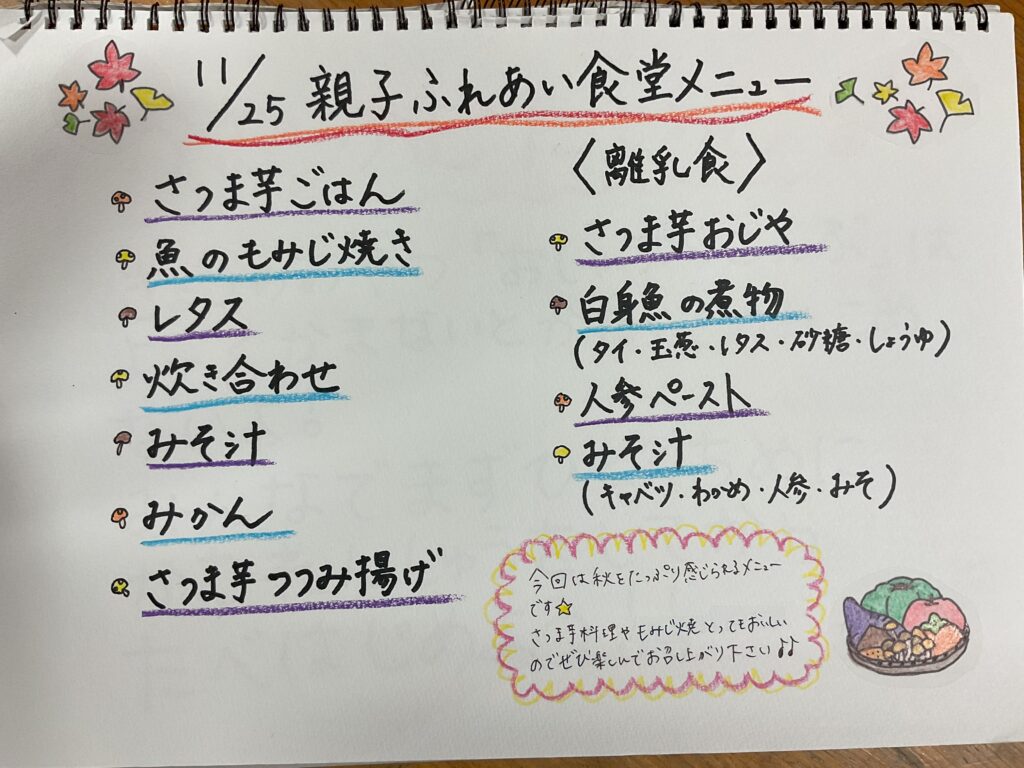 11/25 親子ふれあい食堂メニュー
さつま芋ごはん
魚のもみじ焼き
レタス
炊き合わせ
みそ汁
みかん
さつま芋つつみ揚げ
〈離乳食〉
さつま芋おじや
白身魚の煮物
(タイ・玉葱・レタス・砂糖・しょうゆ)
人参ペースト
みそ汁
(キャベツ・わかめ・人参・みそ)
今回は秋をたっぷり感じられるメニュー
です☆
さつま芋料理やもみじ焼とってもおいしい
のでぜひ楽しんでお召し上がり下さい♪♪